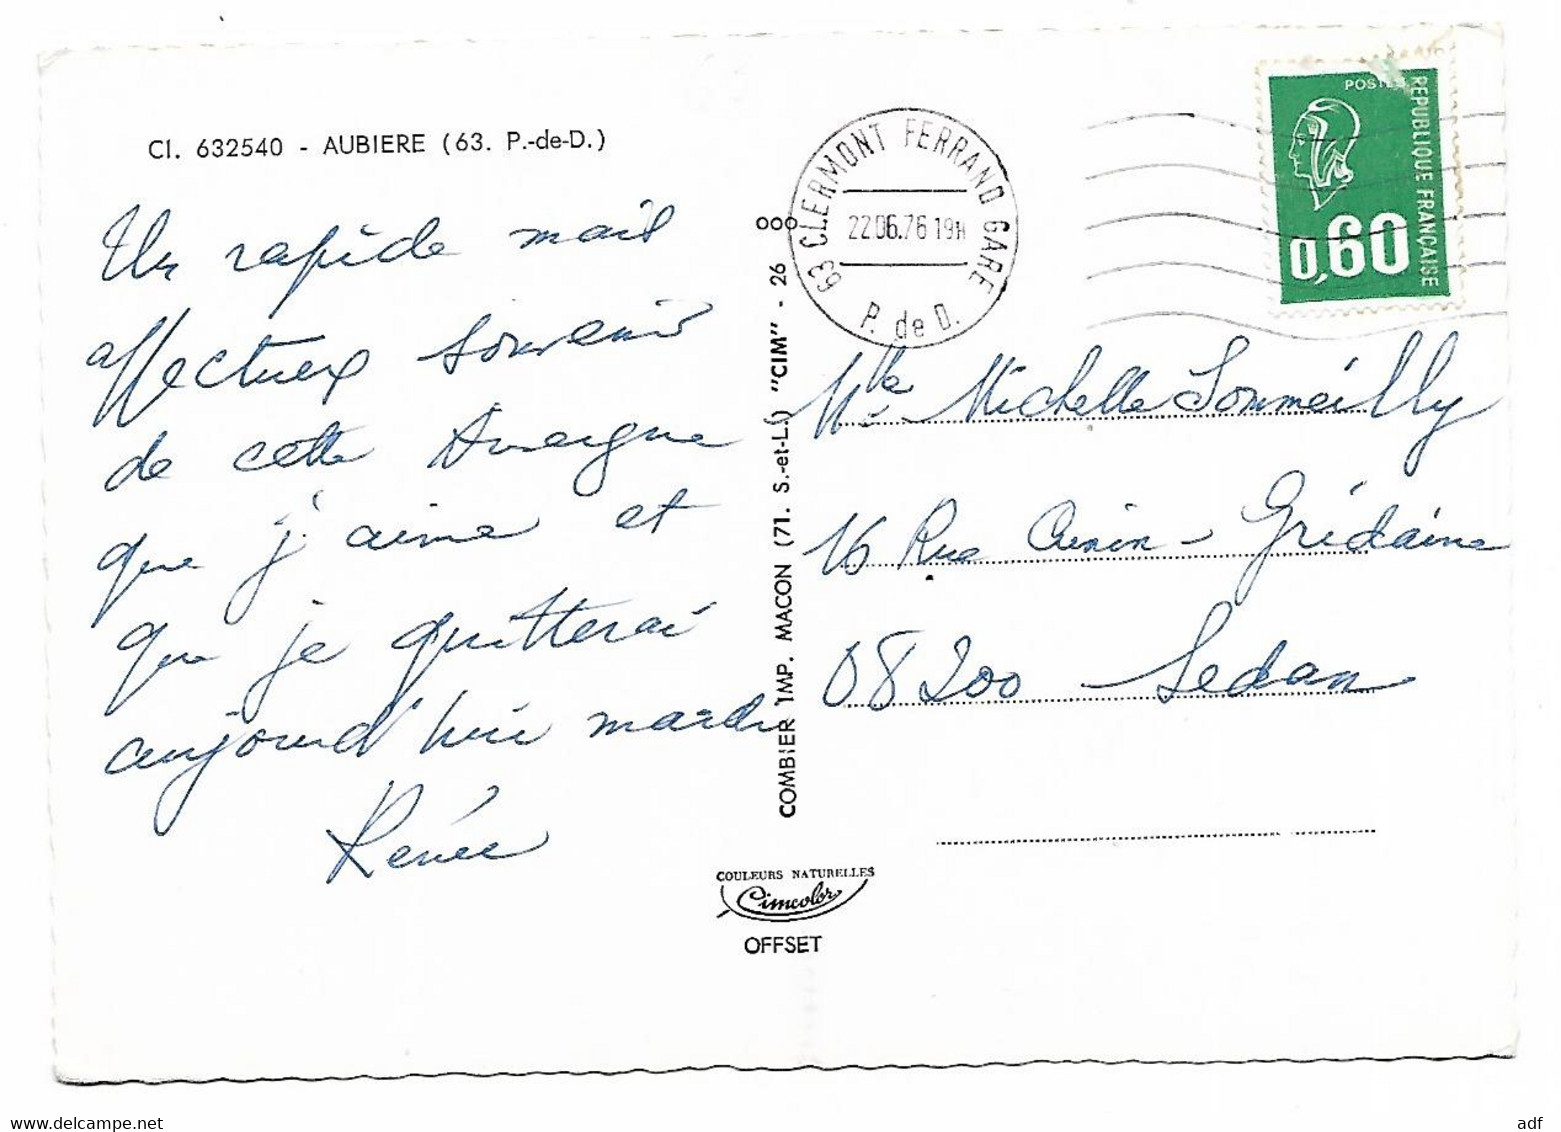 CI. 632540 - AUBIERE (63. P.-de-D.)
Un rapide mais
affectueux souvenir
de cette Auvergne
que j'aime et
que je quitterai
aujourd'hui mardi
Renée
COMBIER IMP. MACON (71. S.-et-L.) "CIM" - 26
COULEURS NATURELLES
Cimcolor
OFFSET
63 CLERMONT FERRAND GARE
22 06.76 19H
P. de D.
POSTES
REPUBLIQUE FRANÇAISE
0,60
Mlle Michelle Sommeilly
16 Rue Cunin-Gridaine
08200 Sedan
adf
www.delcampe.net